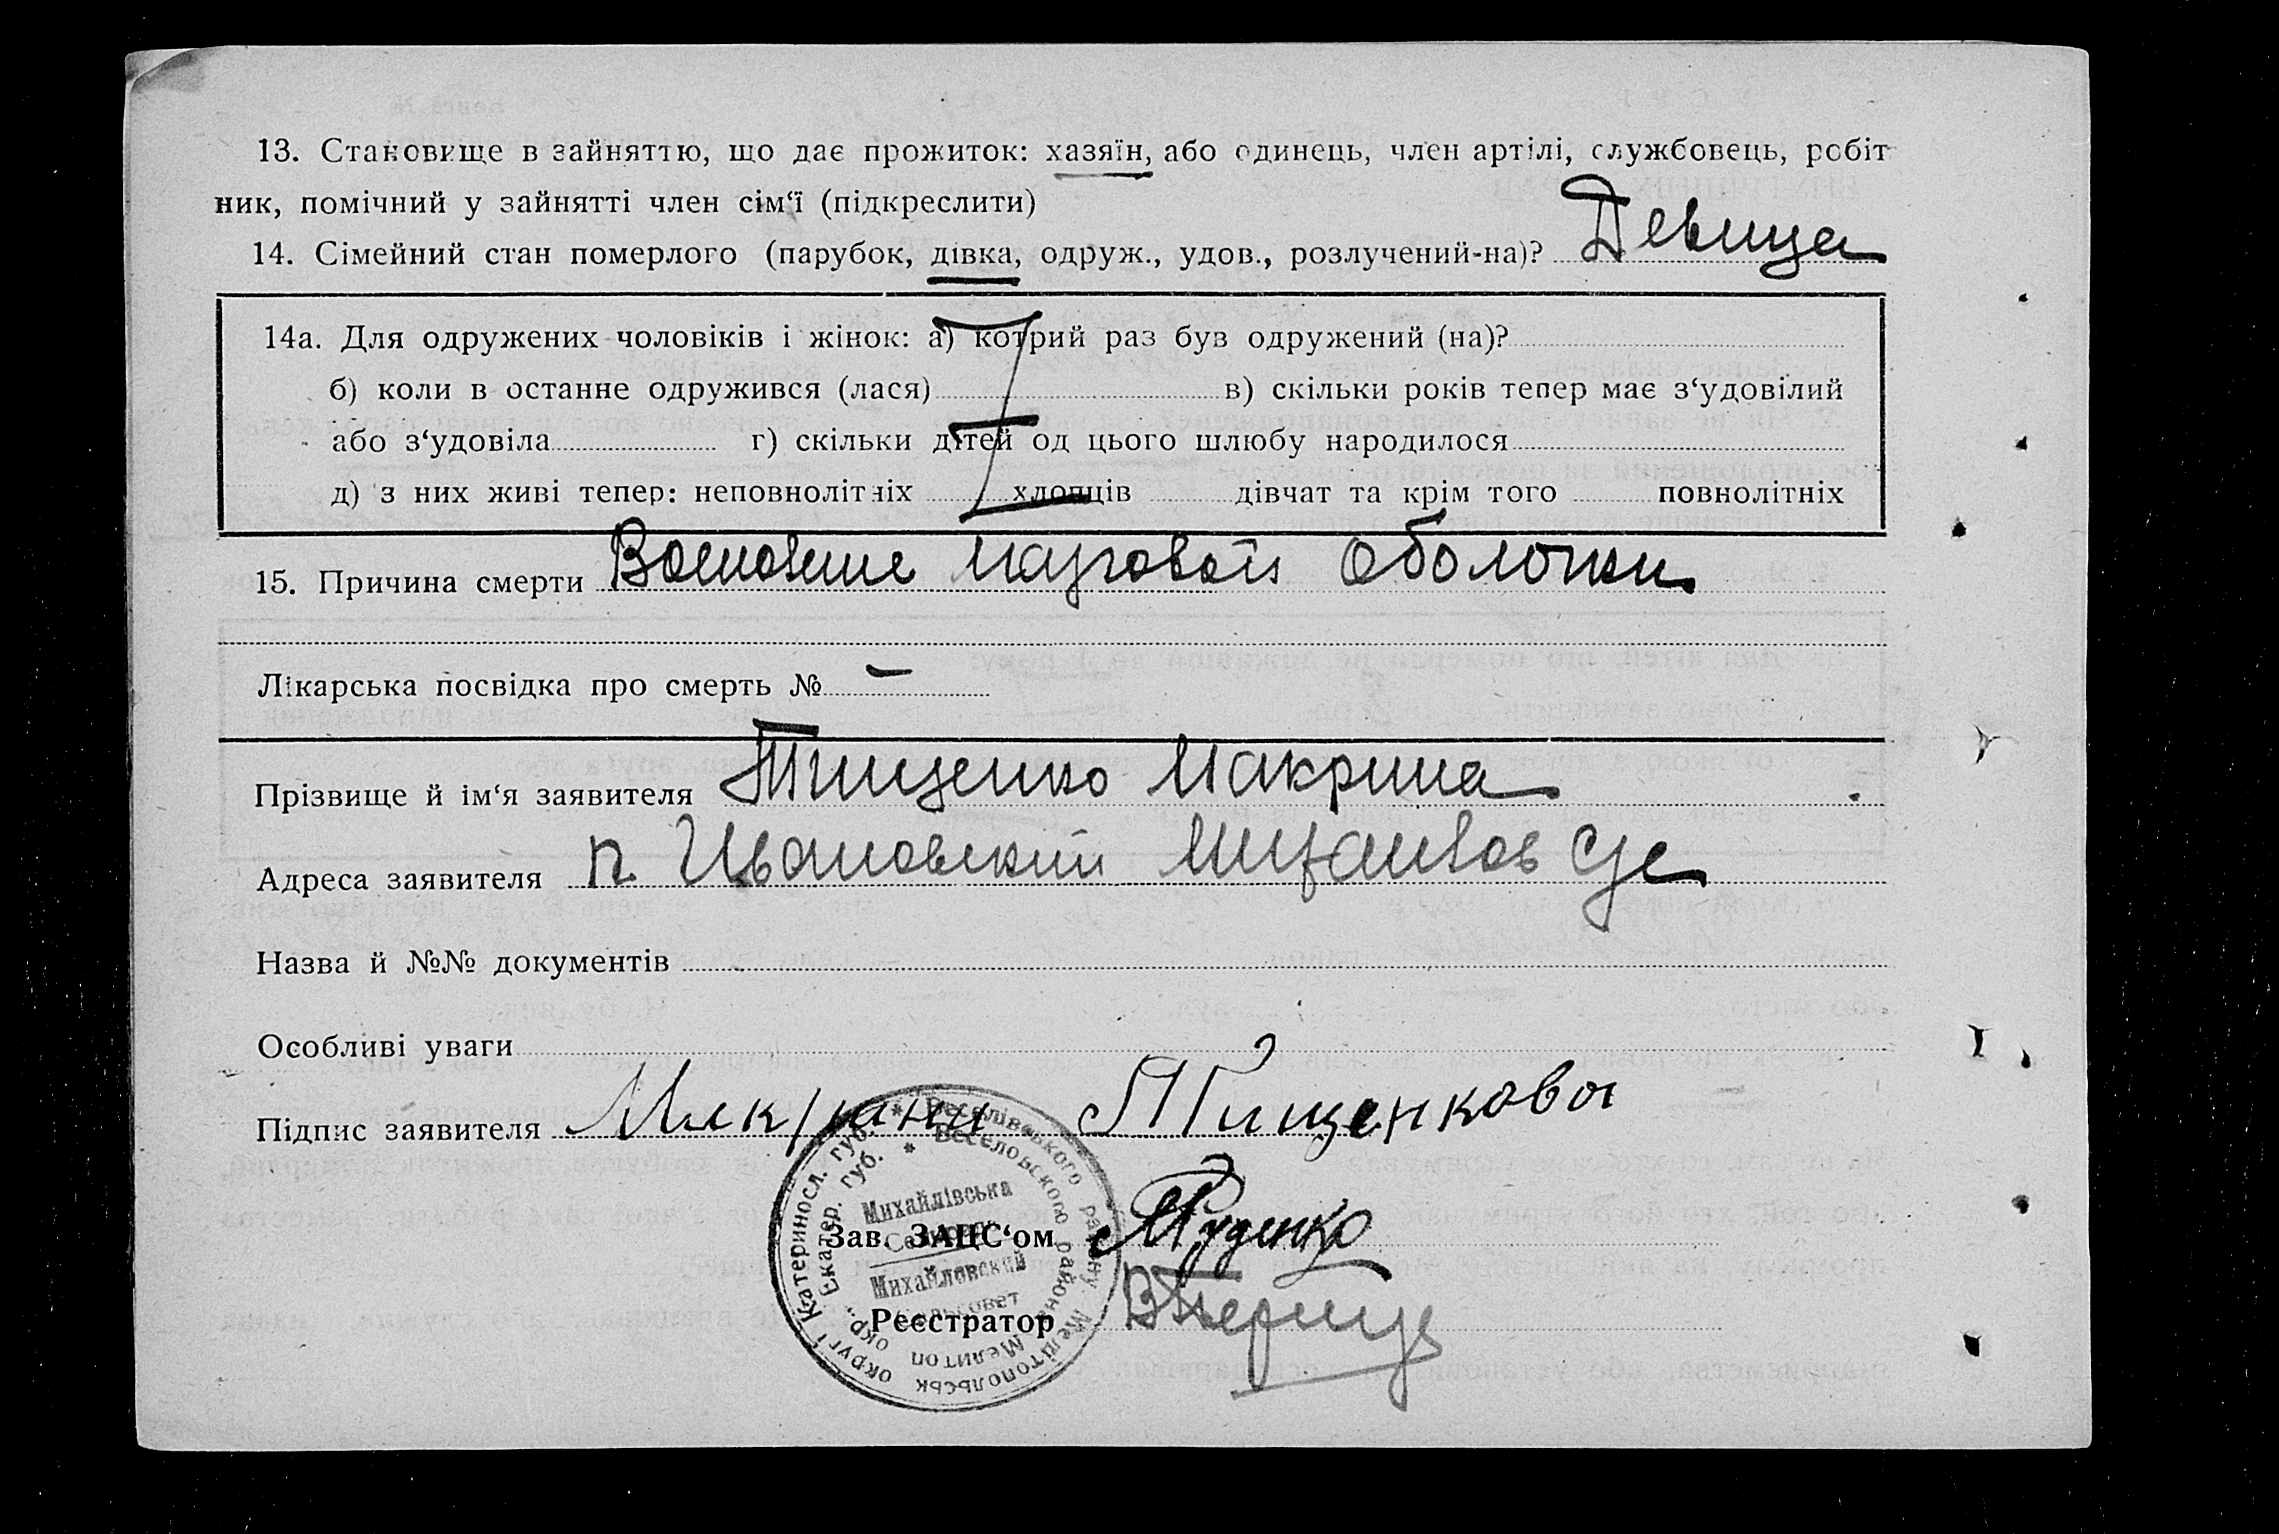 13. Становище в зайняттю, що дає прожиток: хазяїн, або одинець, член артілі, службовець, робіт
ник, помічний у зайнятті член сім‘ї (підкреслити)
14. Сімейний стан померлого (парубок, дівка, одруж., удов., розлучений-на)? Девица
14а. Для одружених чоловіків і жінок: а) котрий раз був одружений (на)?
б) коли в останне одружився (лася) в) скільки років тепер має з‘удовілий
або з‘удовіла г) скільки дітей од цього шлюбу народилося
д) з них живі тепер: неповнолітніх хлопців дівчат та крім того повнолітніх
15. Причина смерти мозговой оболочки
Лікарська посвідка про смерть № –
Прізвище й ім‘я заявителя Тищенко Макрина
Адреса заявителя п. Ивановский С/с
Назва й №№ документів
Особливі уваги
Підпис заявителя Тищенкова
Веселівського району Мелітопольськ округі Катериносл. губ.
Веселовского района Мелитоп окр. Екатер. губ.
Михайлівська
Сельрада
Михайловский
Сельсовет
Зав. ЗАЦС‘ом Руденко
Реєстратор